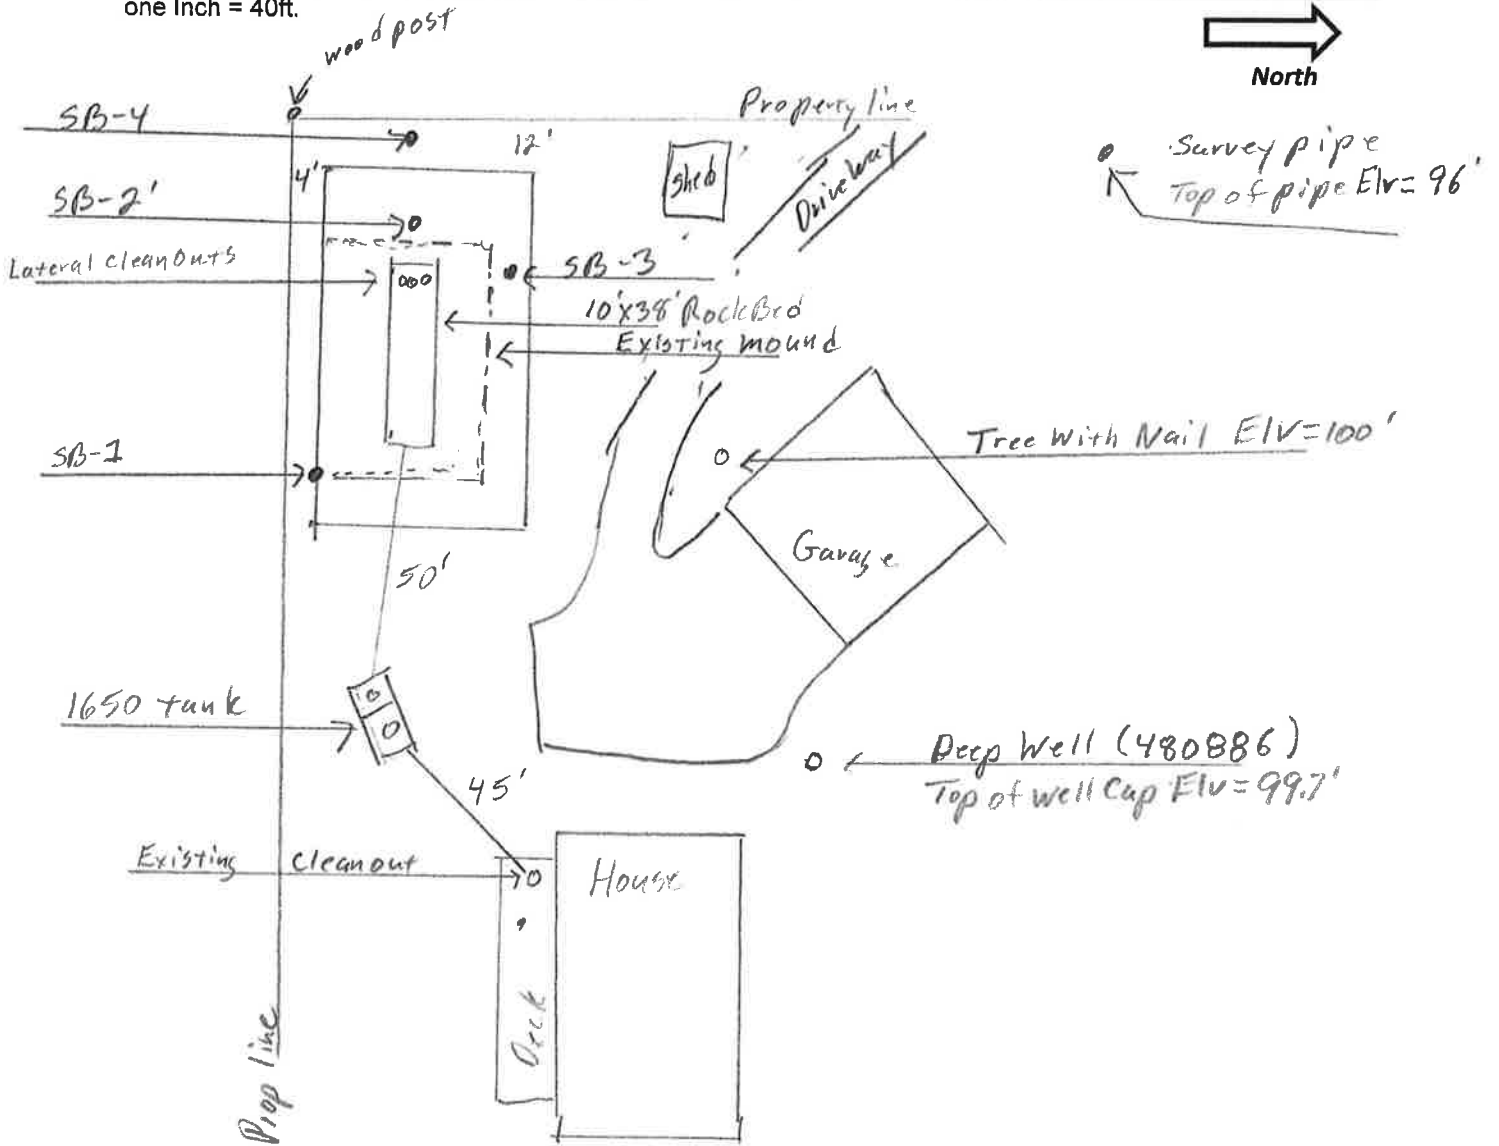 one Inch = 40ft.
wood post
North
Property line
SB-4
12'
Survey pipe
Top of pipe Elv= 96'
shed
Driveway
4'
SB-2'
Lateral Cleanouts
SB-3
10'x38' Rock Bed
Existing mound
Tree With Nail Elv=100'
SB-1
Garage
50'
1650 tank
Deep Well (480886)
Top of well Cap Elv= 99.7'
45'
Existing Cleanout
House
Deck
Prop line